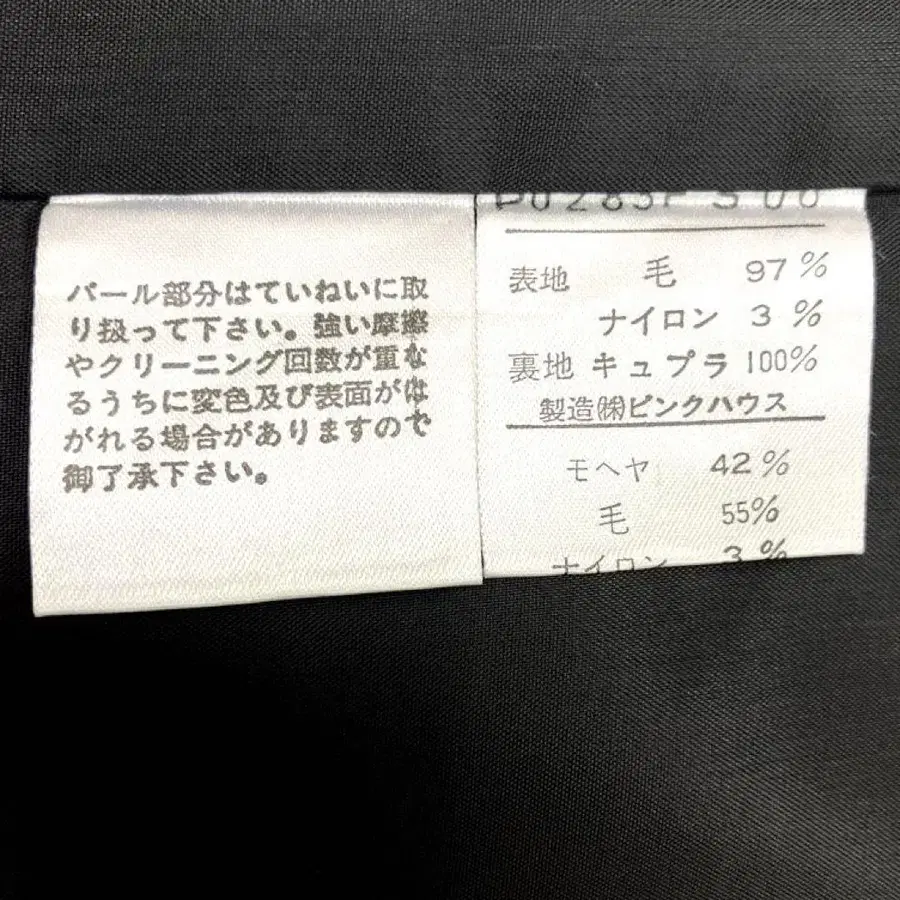 パール部分はていねいに取
り扱って下さい。強い摩擦
やクリーニング回数が重な
るうちに変色及び表面がは
がれる場合がありますので
御了承下さい。
表地 毛 97%
ナイロン 3%
裏地 キュプラ 100%
製造㈱ピンクハウス
モヘヤ 42%
毛 55%
ナイロン 3%